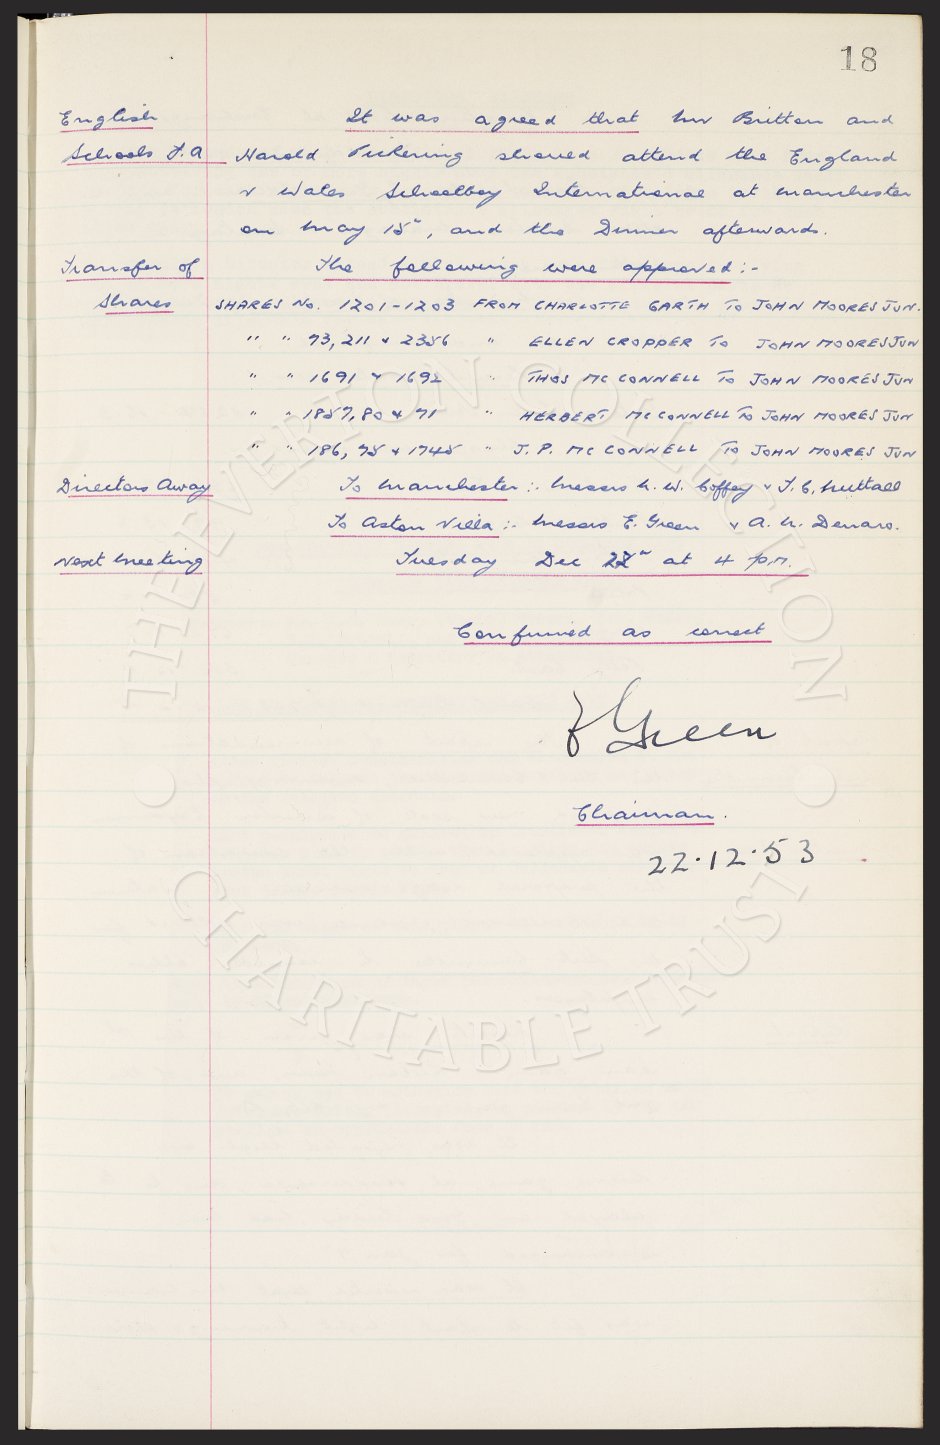 18
English It was agreed that Mr Britton and
Schools F.A Harold Pickering should attend the England
v Wales Schoolboy International at Manchester
on May 15", and the Dinner afterwards.
Transfer of The following were approved :-
Shares SHARES NO. 1201-1203 FROM CHARLOTTE GARTH TO JOHN MOORES JUN.
" " 73, 211 & 2356 " ELLEN CROPPER TO JOHN MOORES JUN
" " 1691 & 1692 " THOS MC CONNELL TO JOHN MOORES JUN
" " 1857, 80 & 71 " HERBERT MC CONNELL TO JOHN MOORES JUN
" " 186, 75 & 1745 " J. P. MC CONNELL TO JOHN MOORES JUN
Directors Away To Manchester :- Messrs N. W. Coffey & T. C. Nuttall
To Aston Villa :- Messrs E. Green & A. N. Denaro.
Next Meeting Tuesday Dec 22" at 4 p.m.
Confirmed as correct
E Green
Chairman.
22.12.53
THE EVERTON COLLECTION
CHARITABLE TRUST